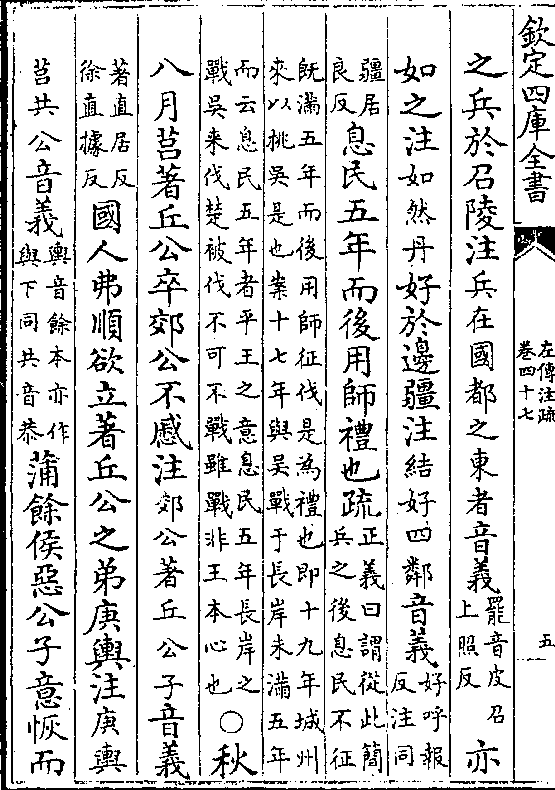 欽定四庫全書
左傳注疏
卷四十七
五
之兵於召陵注兵在國都之東者音義
罷音皮召
上照反
亦
如之注如然丹好於邊疆注結好四鄰音義
好呼報
反注同
疆居
良反
息民五年而後用師禮也疏
正義曰謂從此簡
兵之後息民不征
既滿五年而後用師征伐是為禮也即十九年城州
來以桃吳是也案十七年與吳戰于長岸未滿五年
而云息民五年者平王之意息民五年長岸之
戰吳来伐楚被伐不可不戰雖戰非王本心也
○秋
八月莒著丘公卒郊公不慼注郊公著丘公子音義
著直居反
徐直據反
國人弗順欲立著丘公之弟庚輿注庚輿
莒共公音義
輿音餘本亦作
與下同共音恭
蒲餘侯惡公子意恢而